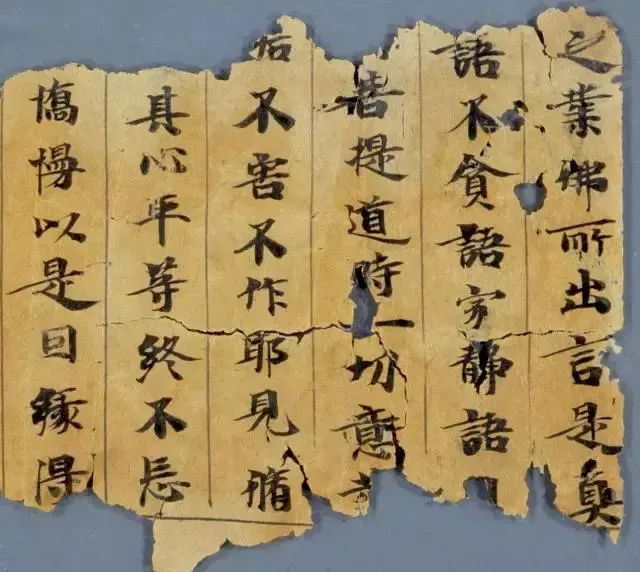 之業佛所出言是真
語不貪語寂靜語
菩提道時一切意
不害不作耶見脩
其心平等終不忘
憍慢以是因緣得